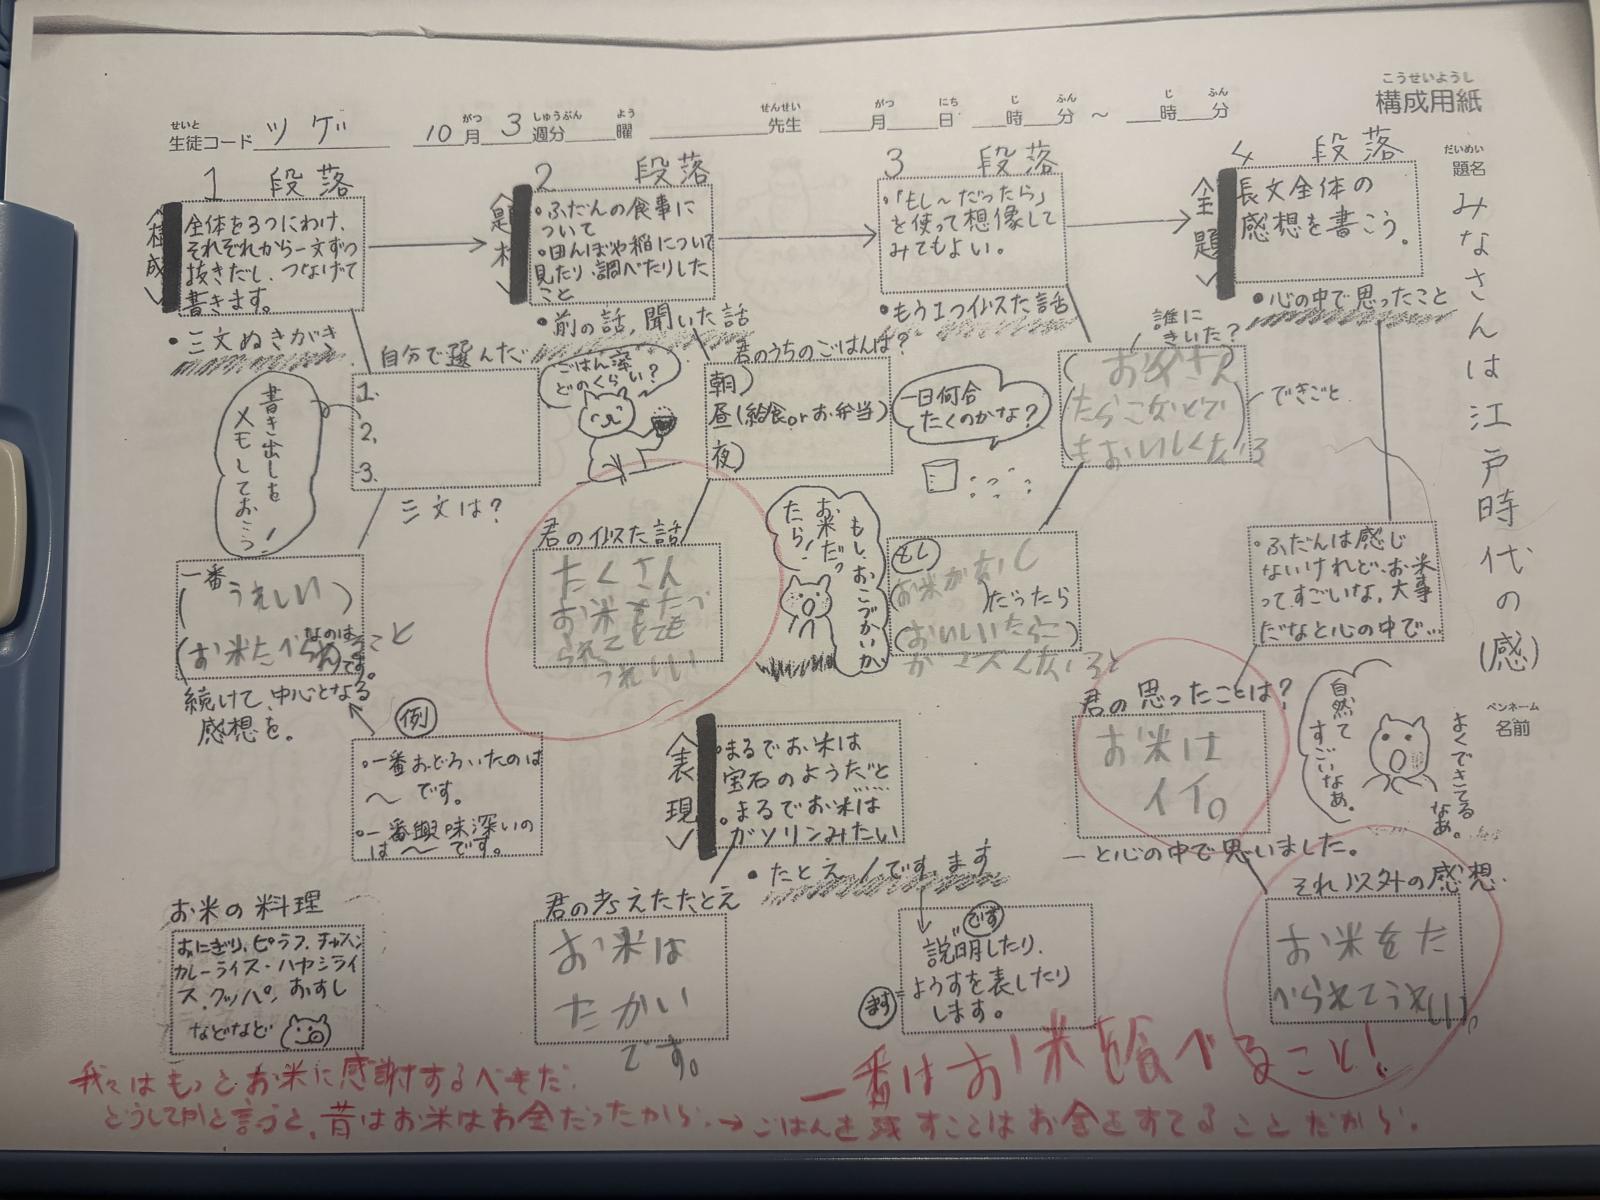 こうせいようし
構成用紙
せいと
生徒コード ツゲ
がつ しゅうぶん よう
10月 3週分 曜
せんせい
先生
がつ にち じ ふん じ ふん
月 日 時 分 ～ 時 分
だいめい
題名
みなさんは江戸時代の(感)
ペンネーム
名前
1 段落
<構成>
全体を3つにわけ、
それぞれから一文ずつ
抜きだし、つなげて
書きます。
・三文ぬきがき
自分で選んだ
1.
2.
3.
三文は？
書き出しを
メモしておこう！
一番
(うれしい)
(お米たべられること)
なのは
です。
続けて、中心となる
感想を。
例
・一番おどろいたのは
～です。
・一番興味深いの
は～です。
お米の料理
おにぎり、ピラフ、チャーハン
カレーライス・ハヤシライ
ス、クッパ、おすし
などなど
2 段落
<題材>
・ふだんの食事に
ついて
・田んぼや稲について
見たり、調べたりした
こと
・前の話,聞いた話
ごはん楽
どのくらい？
君のうちのごはんは？
朝)
昼(給食orお弁当)
夜)
君の似た話
たくさん
お米をたべ
られてとても
うれしい
<表現>
・まるでお米は
宝石のようだと
・まるでお米は
ガソリンみたい
・たとえ/です、ます
君の考えたたとえ
お米は
たかい
です。
です
説明したり、
ます=ようすを表したり
します。
3 段落
・「もし～だったら」
を使って想像して
みてもよい。
・もう1つ似た話
一日何合
たくのかな？
誰に
きいた？
(お父さん
たらこなどで
もおいしくたいる
できごと
もし、おこづかいが
お米だっ
たら！
もし
(お米がなし
)だったら
(おいしいたらこ)
4 段落
<全題>
長文全体の
感想を書こう。
・心の中で思ったこと
・ふだんは感じ
ないけれど、お米
ってすごいな。大事
だなと心の中で…
君の思ったことは？
お米は
イイ。
―と心の中で思いました。
自然て
すごいなぁ。
よくできてる
なぁ。
それ以外の感想
お米をた
べられてうれしい。
一番はお米を食べること！
我々はもっとお米に感謝するべきだ。
どうしてかと言うと、昔はお米はお金だったから。→ごはんを残すことはお金をすてることだから。